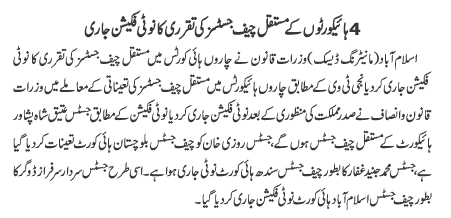 4 ہائیکورٹوں کے مستقل چیف جسٹسز کی تقرری کا نوٹی فکیشن جاری
اسلام آباد (مانیٹرنگ ڈیسک) وزرات قانون نے چاروں ہائی کورٹس میں مستقل چیف جسٹسز کی تقرری کا نوٹی
فکیشن جاری کر دیا نجی ٹی وی کے مطابق چاروں ہائیکورٹس میں مستقل چیف جسٹسز کی تعیناتی کے معاملے میں وزرات
قانون و انصاف نے صدر مملکت کی منظوری کے بعد نوٹی فکیشن جاری کر دیا نوٹی فکیشن کے مطابق جسٹس عتیق شاہ پشاور
ہائیکورٹ کے مستقل چیف جسٹس ہوں گے، جسٹس روزی خان کو چیف جسٹس بلوچستان ہائی کورٹ تعینات کر دیا گیا
ہے، جسٹس محمد جنید غفار کا بطور چیف جسٹس سندھ ہائی کورٹ نوٹی جاری ہوا ہے۔ اسی طرح جسٹس سردار سرفراز ڈوگر کا
بطور چیف جسٹس اسلام آباد ہائی کورٹ نوٹی فکیشن جاری کر دیا گیا۔